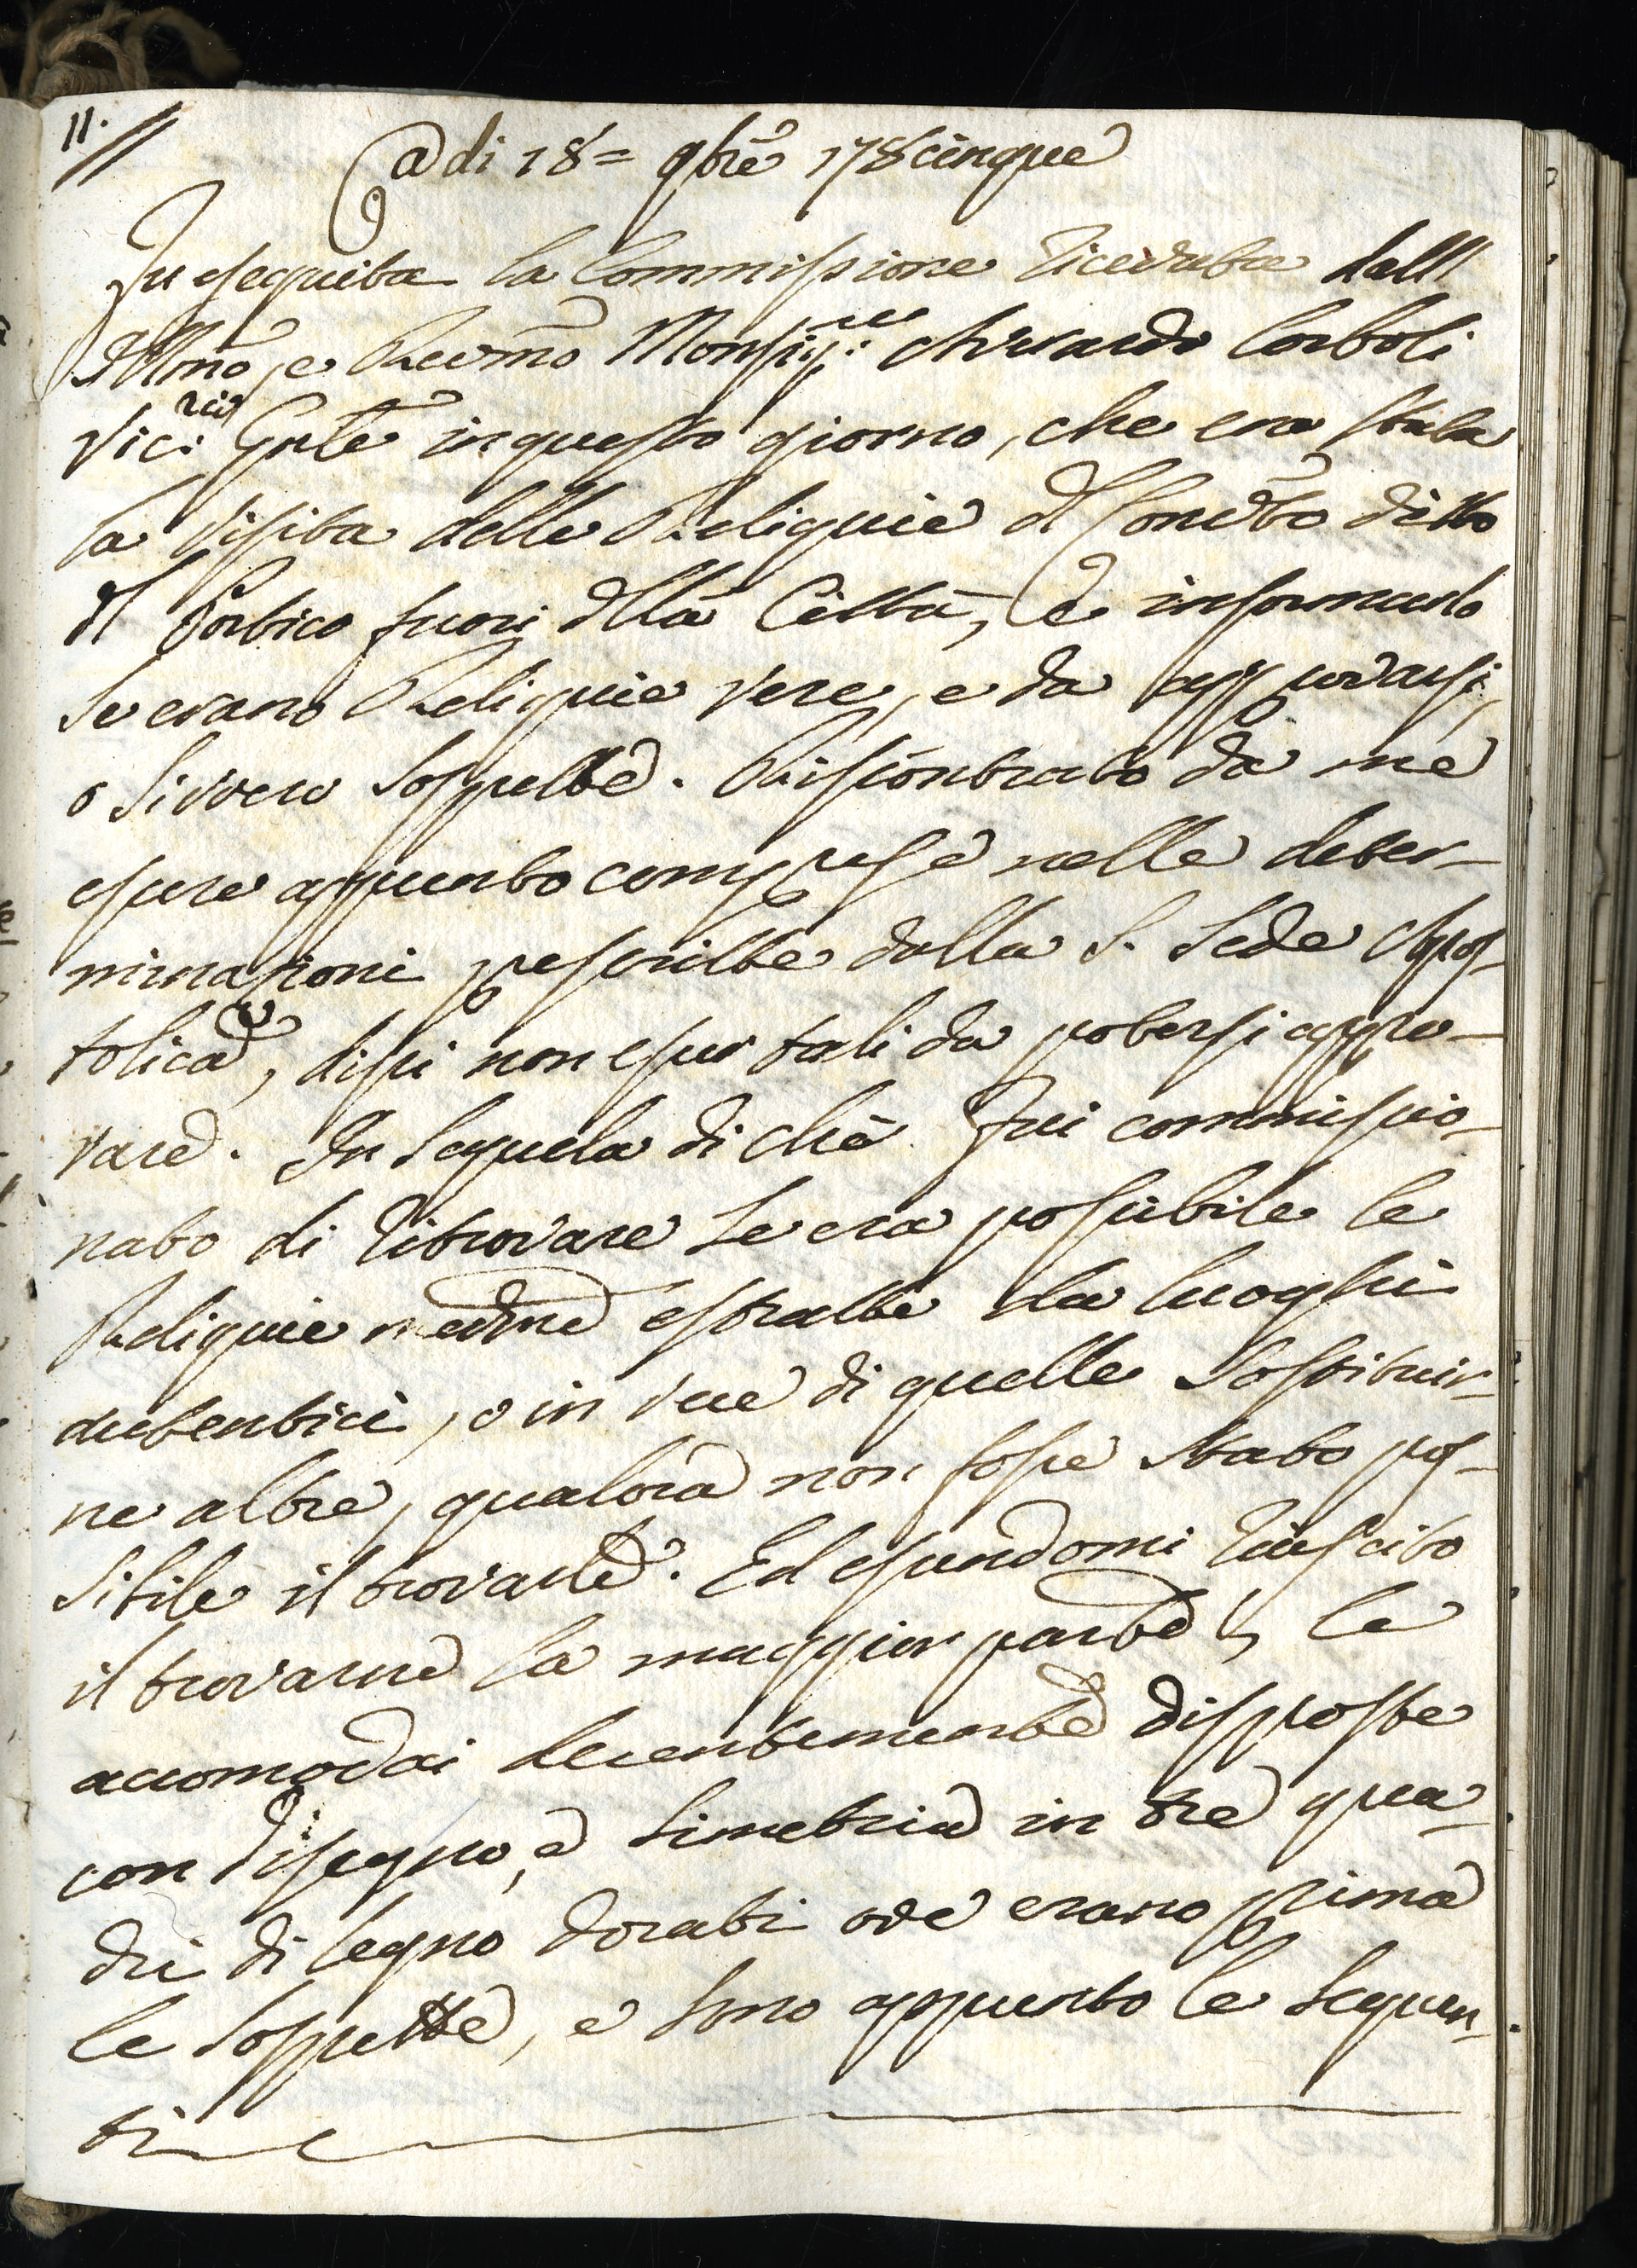 11.
Adi 18= 9bre 178cinque
Fu eseguita la Commissione ricevuta dall'
Illmo, e Revmo Monsig:re Averardo Corboli
Vic:rio Gnle in questo giorno, che era stata
la visita delle Reliquie dl Convto detto
dl Portico fuori dlla Città, e informarlo
se erano Reliquie vere, e da approvarsi,
o sivvero sospette. Riscontrato da me
essere appunto comprese nelle deter-
minazioni prescritte dalla S. Sede Apos-
tolica, dissi non esser tali da potersi appro-
vare. In sequela di che fui commissio-
nato di ritrovare se era possibile le
Reliquie medme estratte da luoghi
autentici, o in vece di quelle sostituir-
ne altre, qualora non fosse stato pos-
sibile il trovarle. Ed essendomi riuscito
il trovarne la maggior parte, le
accomodai decentemente disposte
con disegno, e simetria in tre qua-
dri di legno dorati ove erano prima
le sospette, e sono appunto le seguen-
ti